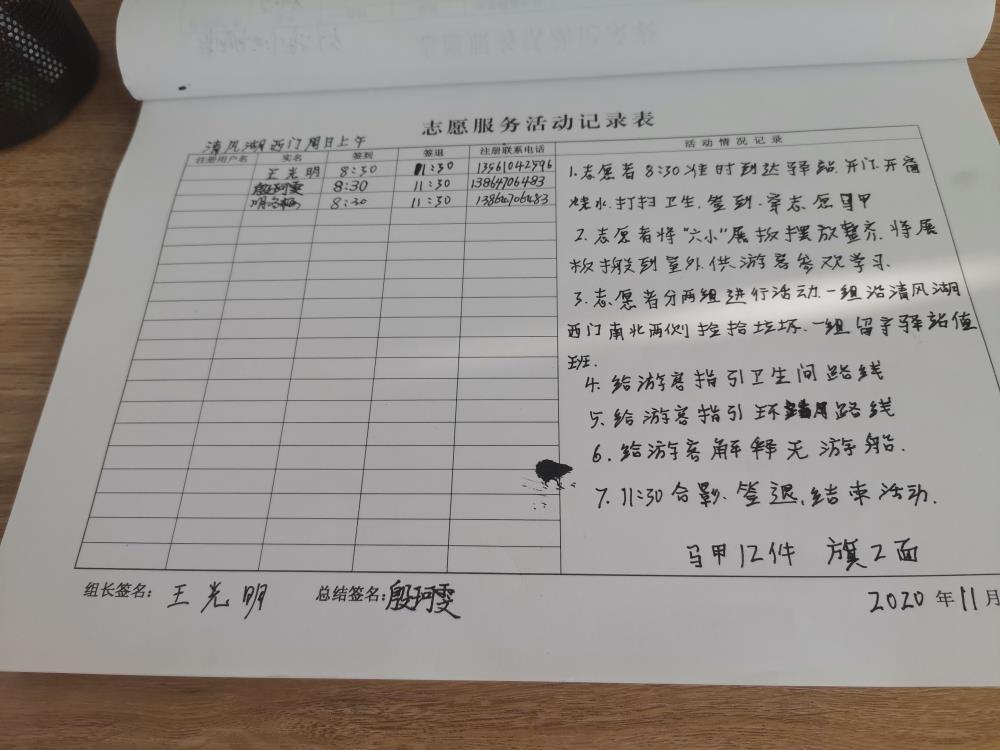 志愿服务活动记录表
清风湖西门周日上午
注册用户名 实名 签到 签退 注册联系电话 活动情况记录
王光明 8:30 11:30 13561042996
殷珂雯 8:30 11:30 13864706483
8:30 11:30 13864706483
1.志愿者8:30准时到达驿站.开门.开窗
烧水.打扫卫生.签到.穿志愿马甲
2.志愿者将“六小”展板摆放整齐.将展
板搬到室外.供游客参观学习.
3.志愿者分两组进行活动.一组沿清风湖
西门南北两侧捡拾垃圾.一组留守驿站值
班.
4.给游客指引卫生间路线
5.给游客指引环湖路线
6.给游客解释无游船.
7.11:30合影.签退,结束活动.
马甲12件 旗2面
组长签名:王光明 总结签名:殷珂雯
2020年11月